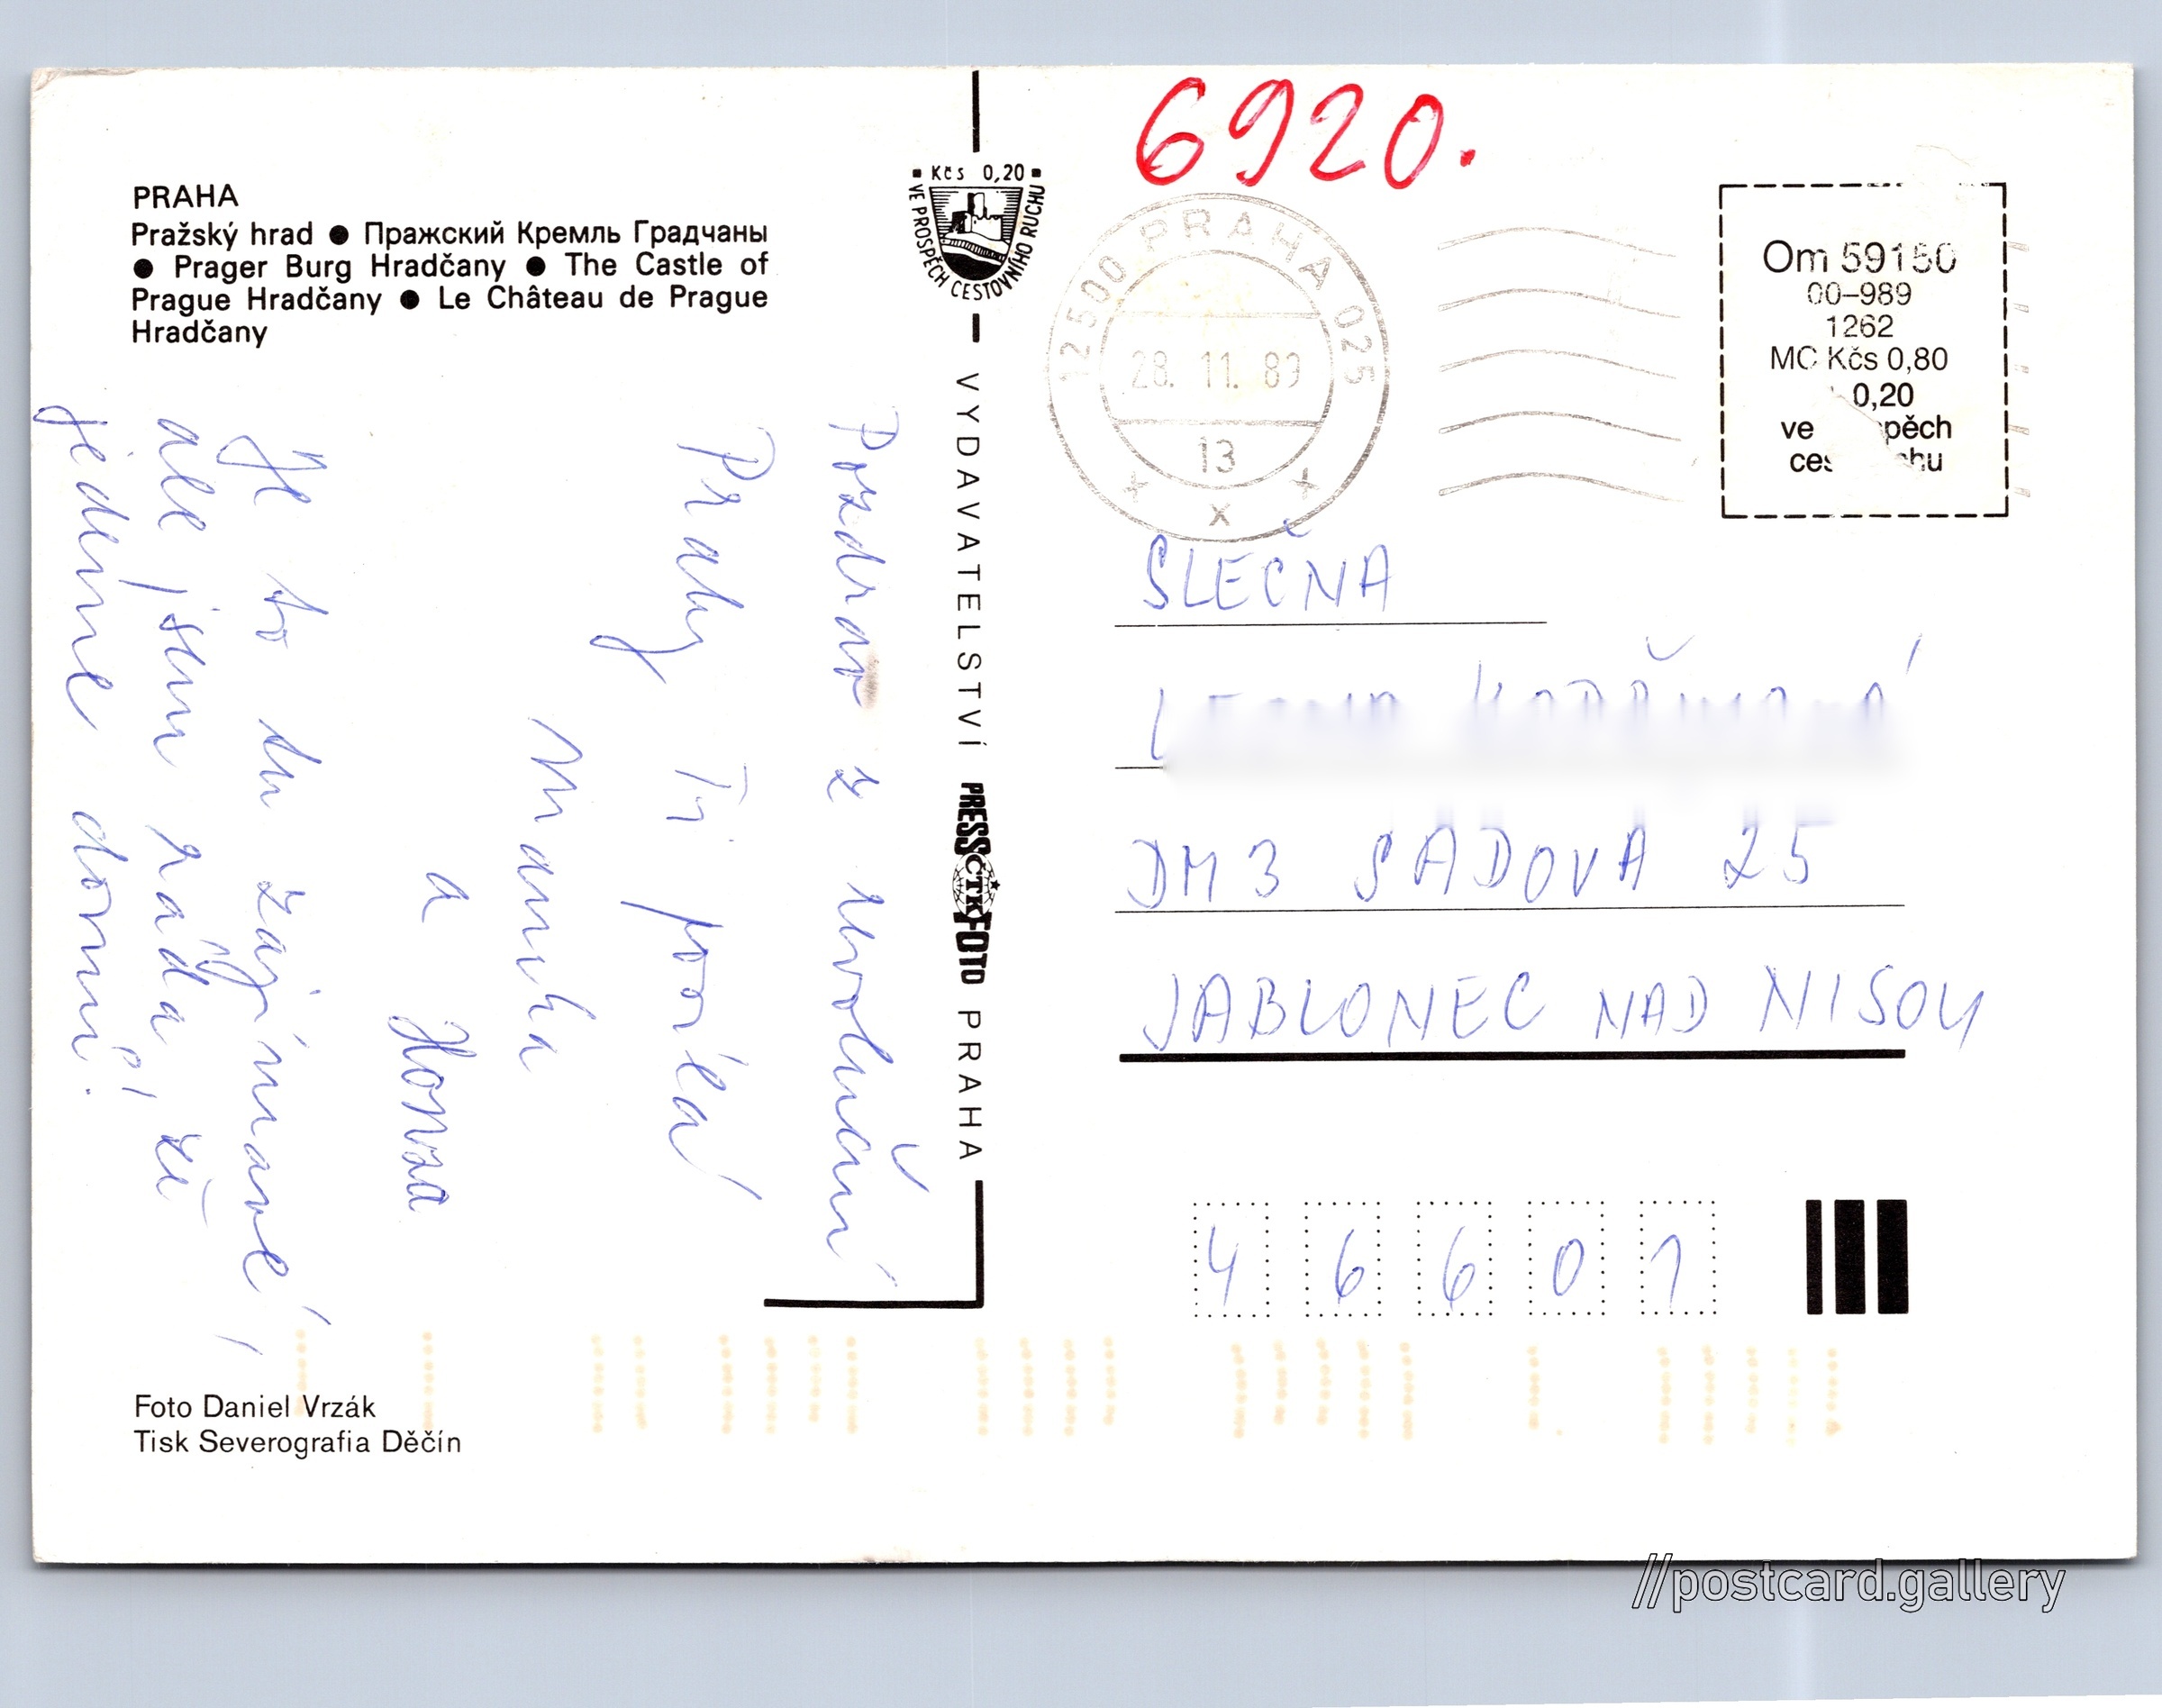 PRAHA
Pražský hrad ● Пражский Кремль Градчаны
● Prager Burg Hradčany ● The Castle of
Prague Hradčany ● Le Château de Prague
Hradčany
Pozdrav z revoluční
Prahy Ti posílá
Manka
a Honza
Je to tu zajímavé,
ale jsem ráda, že
jedeme domů!
Foto Daniel Vrzák
Tisk Severografia Děčín
Kčs 0,20
VE PROSPĚCH CESTOVNÍHO RUCHU
VYDAVATELSTVÍ PRESSFOTO PRAHA
ČTK
6920.
12500 PRAHA 025
28. 11. 89
13
Om 59150
00–989
1262
MC Kčs 0,80
0,20
ve
SLEČNA
DM 3 SADOVÁ 25
JABLONEC NAD NISOU
46601
//postcard.gallery